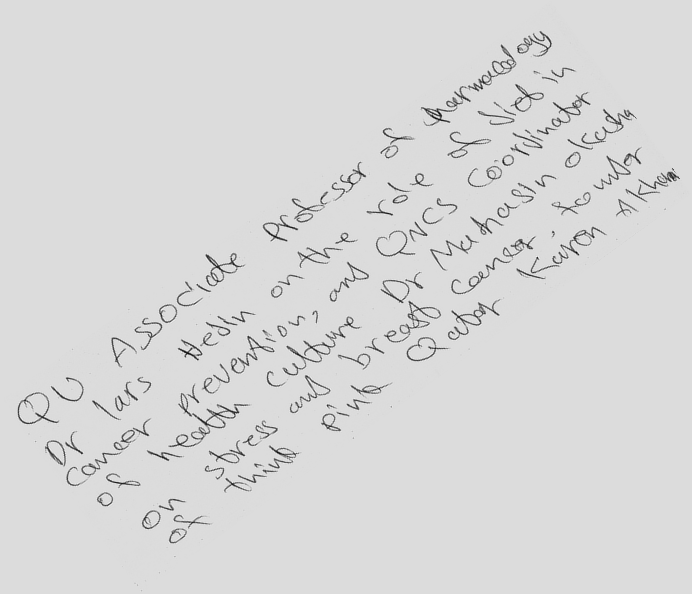 QU Associate Professor of Pharmacology
Dr lars Hedin on the role of diet in
cancer prevention, and QNCS Coordinator
of health culture Dr Muhasin Okasha
on stress and breast cancer. founder
of think pink Qatar Karen Alkharoubi